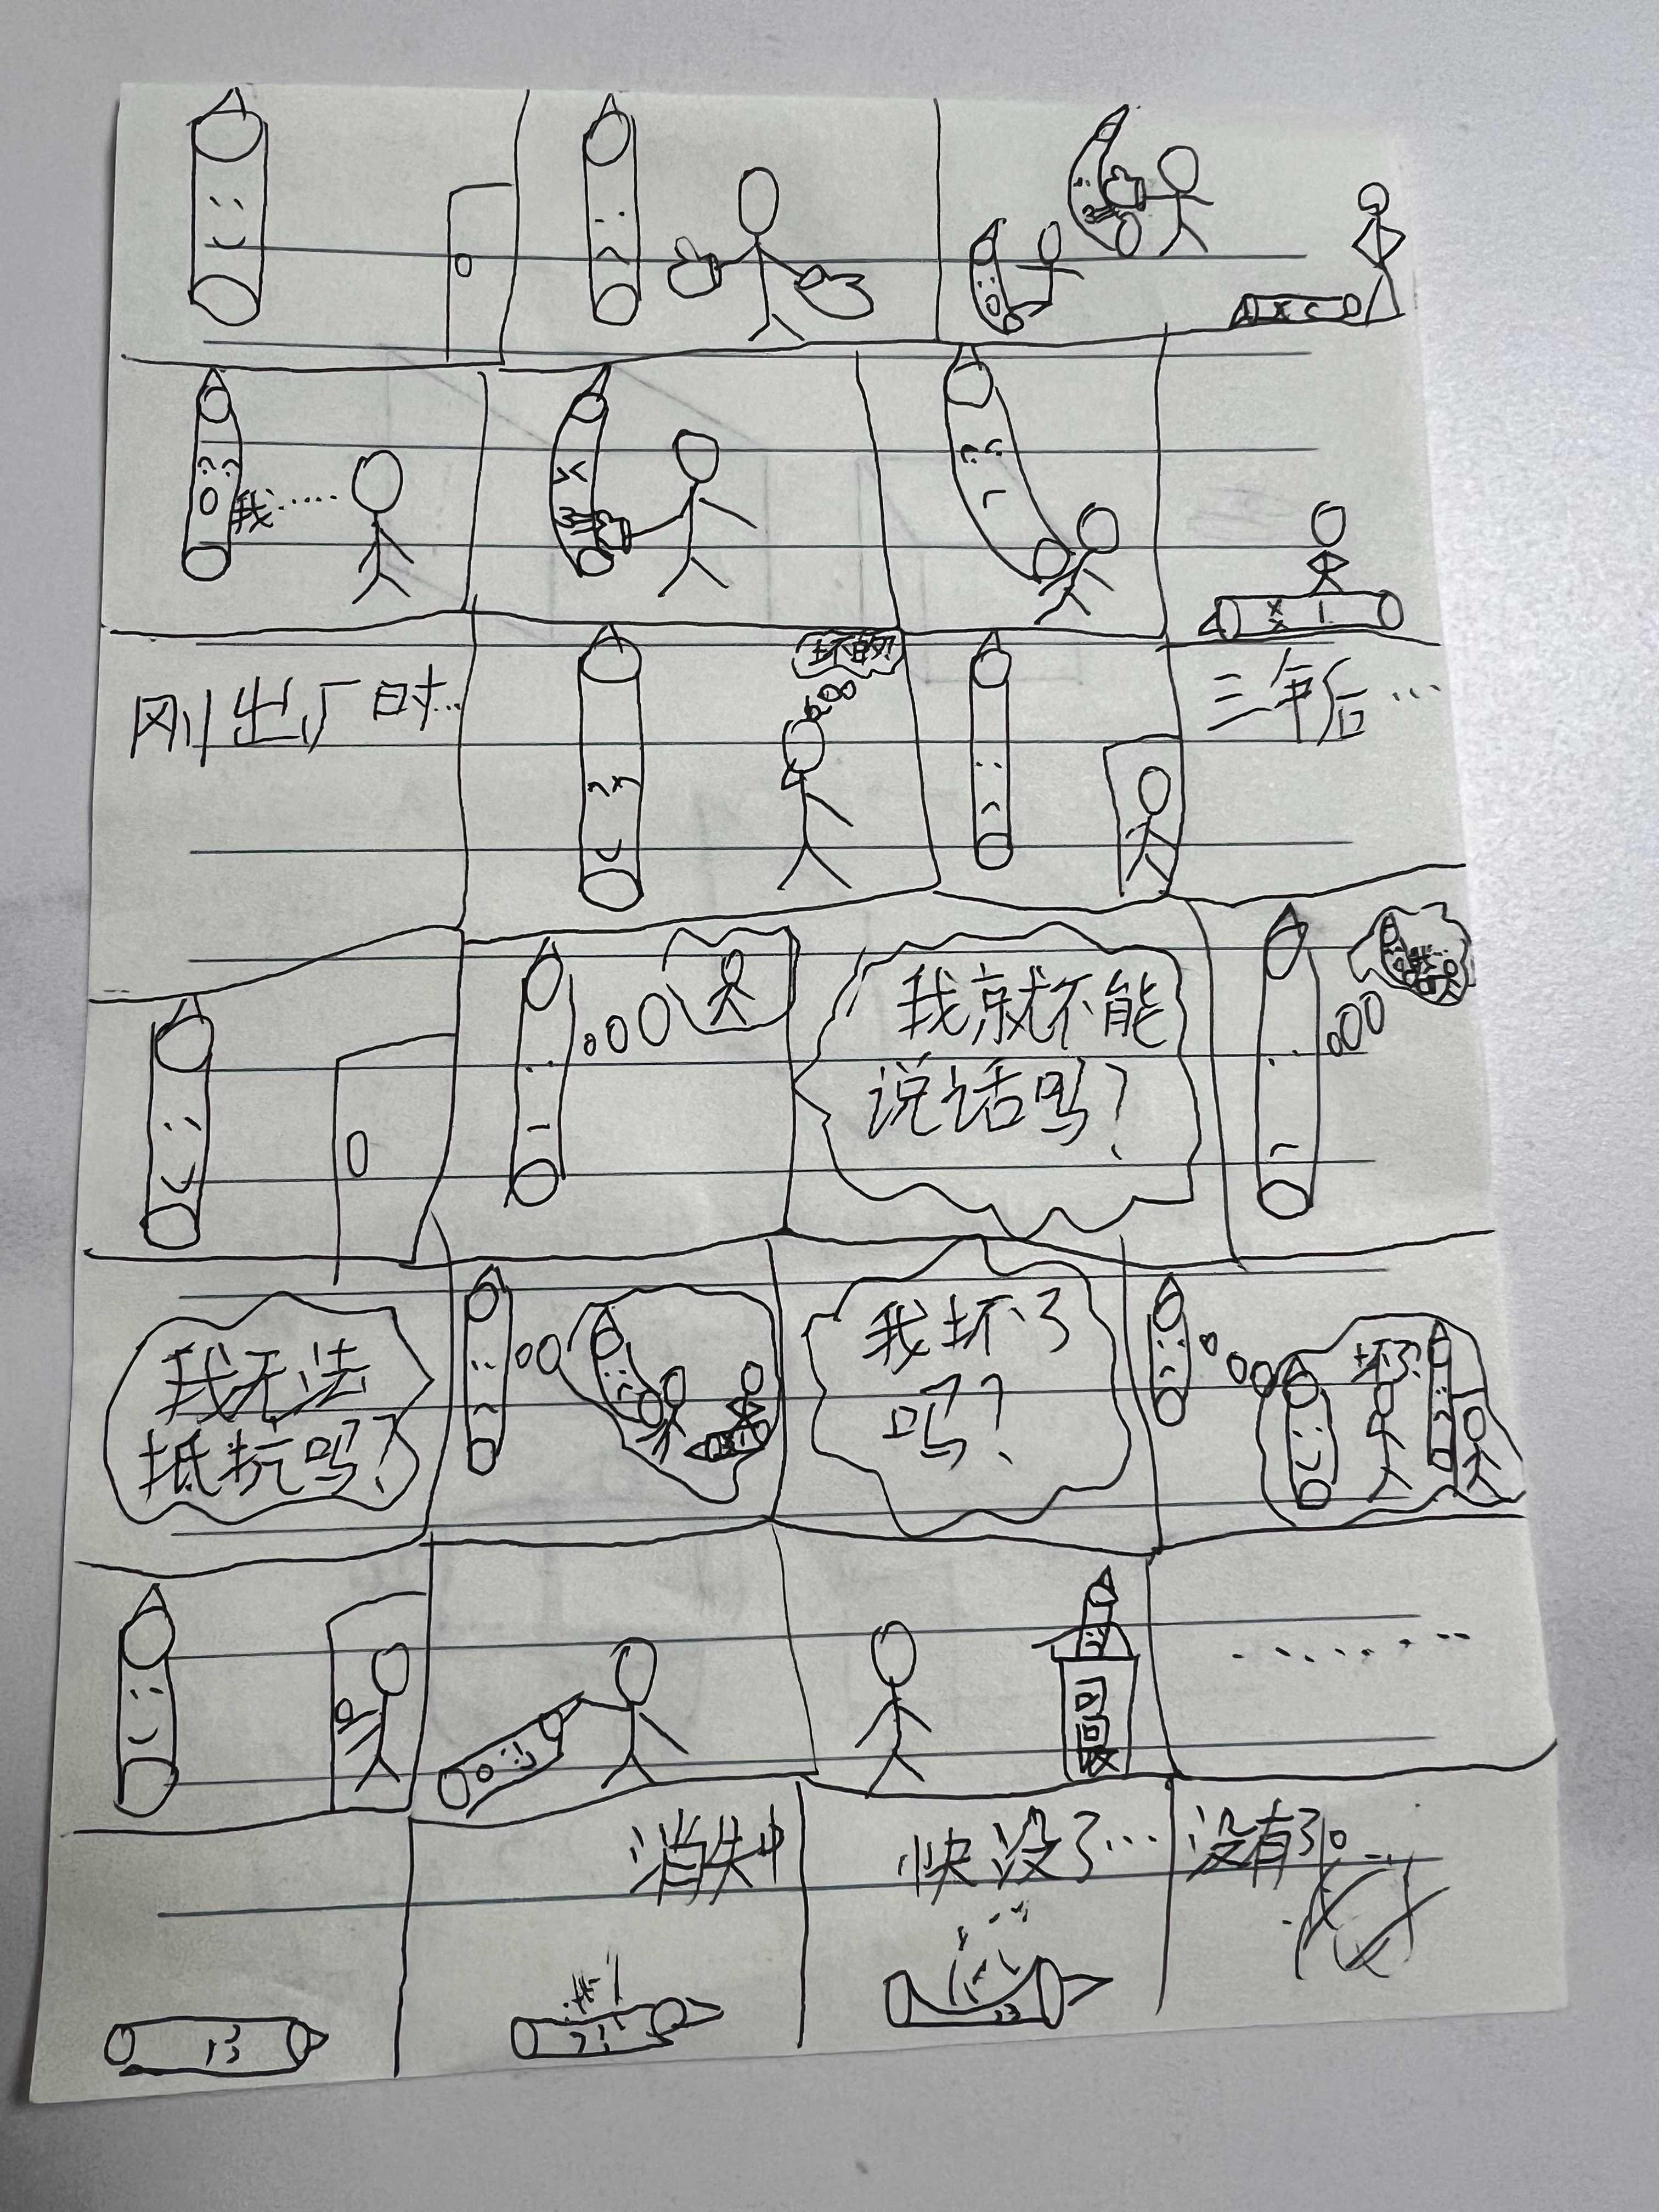 我……
刚出厂时…
坏的?
三年后…
我就不能
说话吗?
我无法
抵抗吗?
我坏了
吗?
坏了?
可回收
………
消失中
快没了…
没有了。